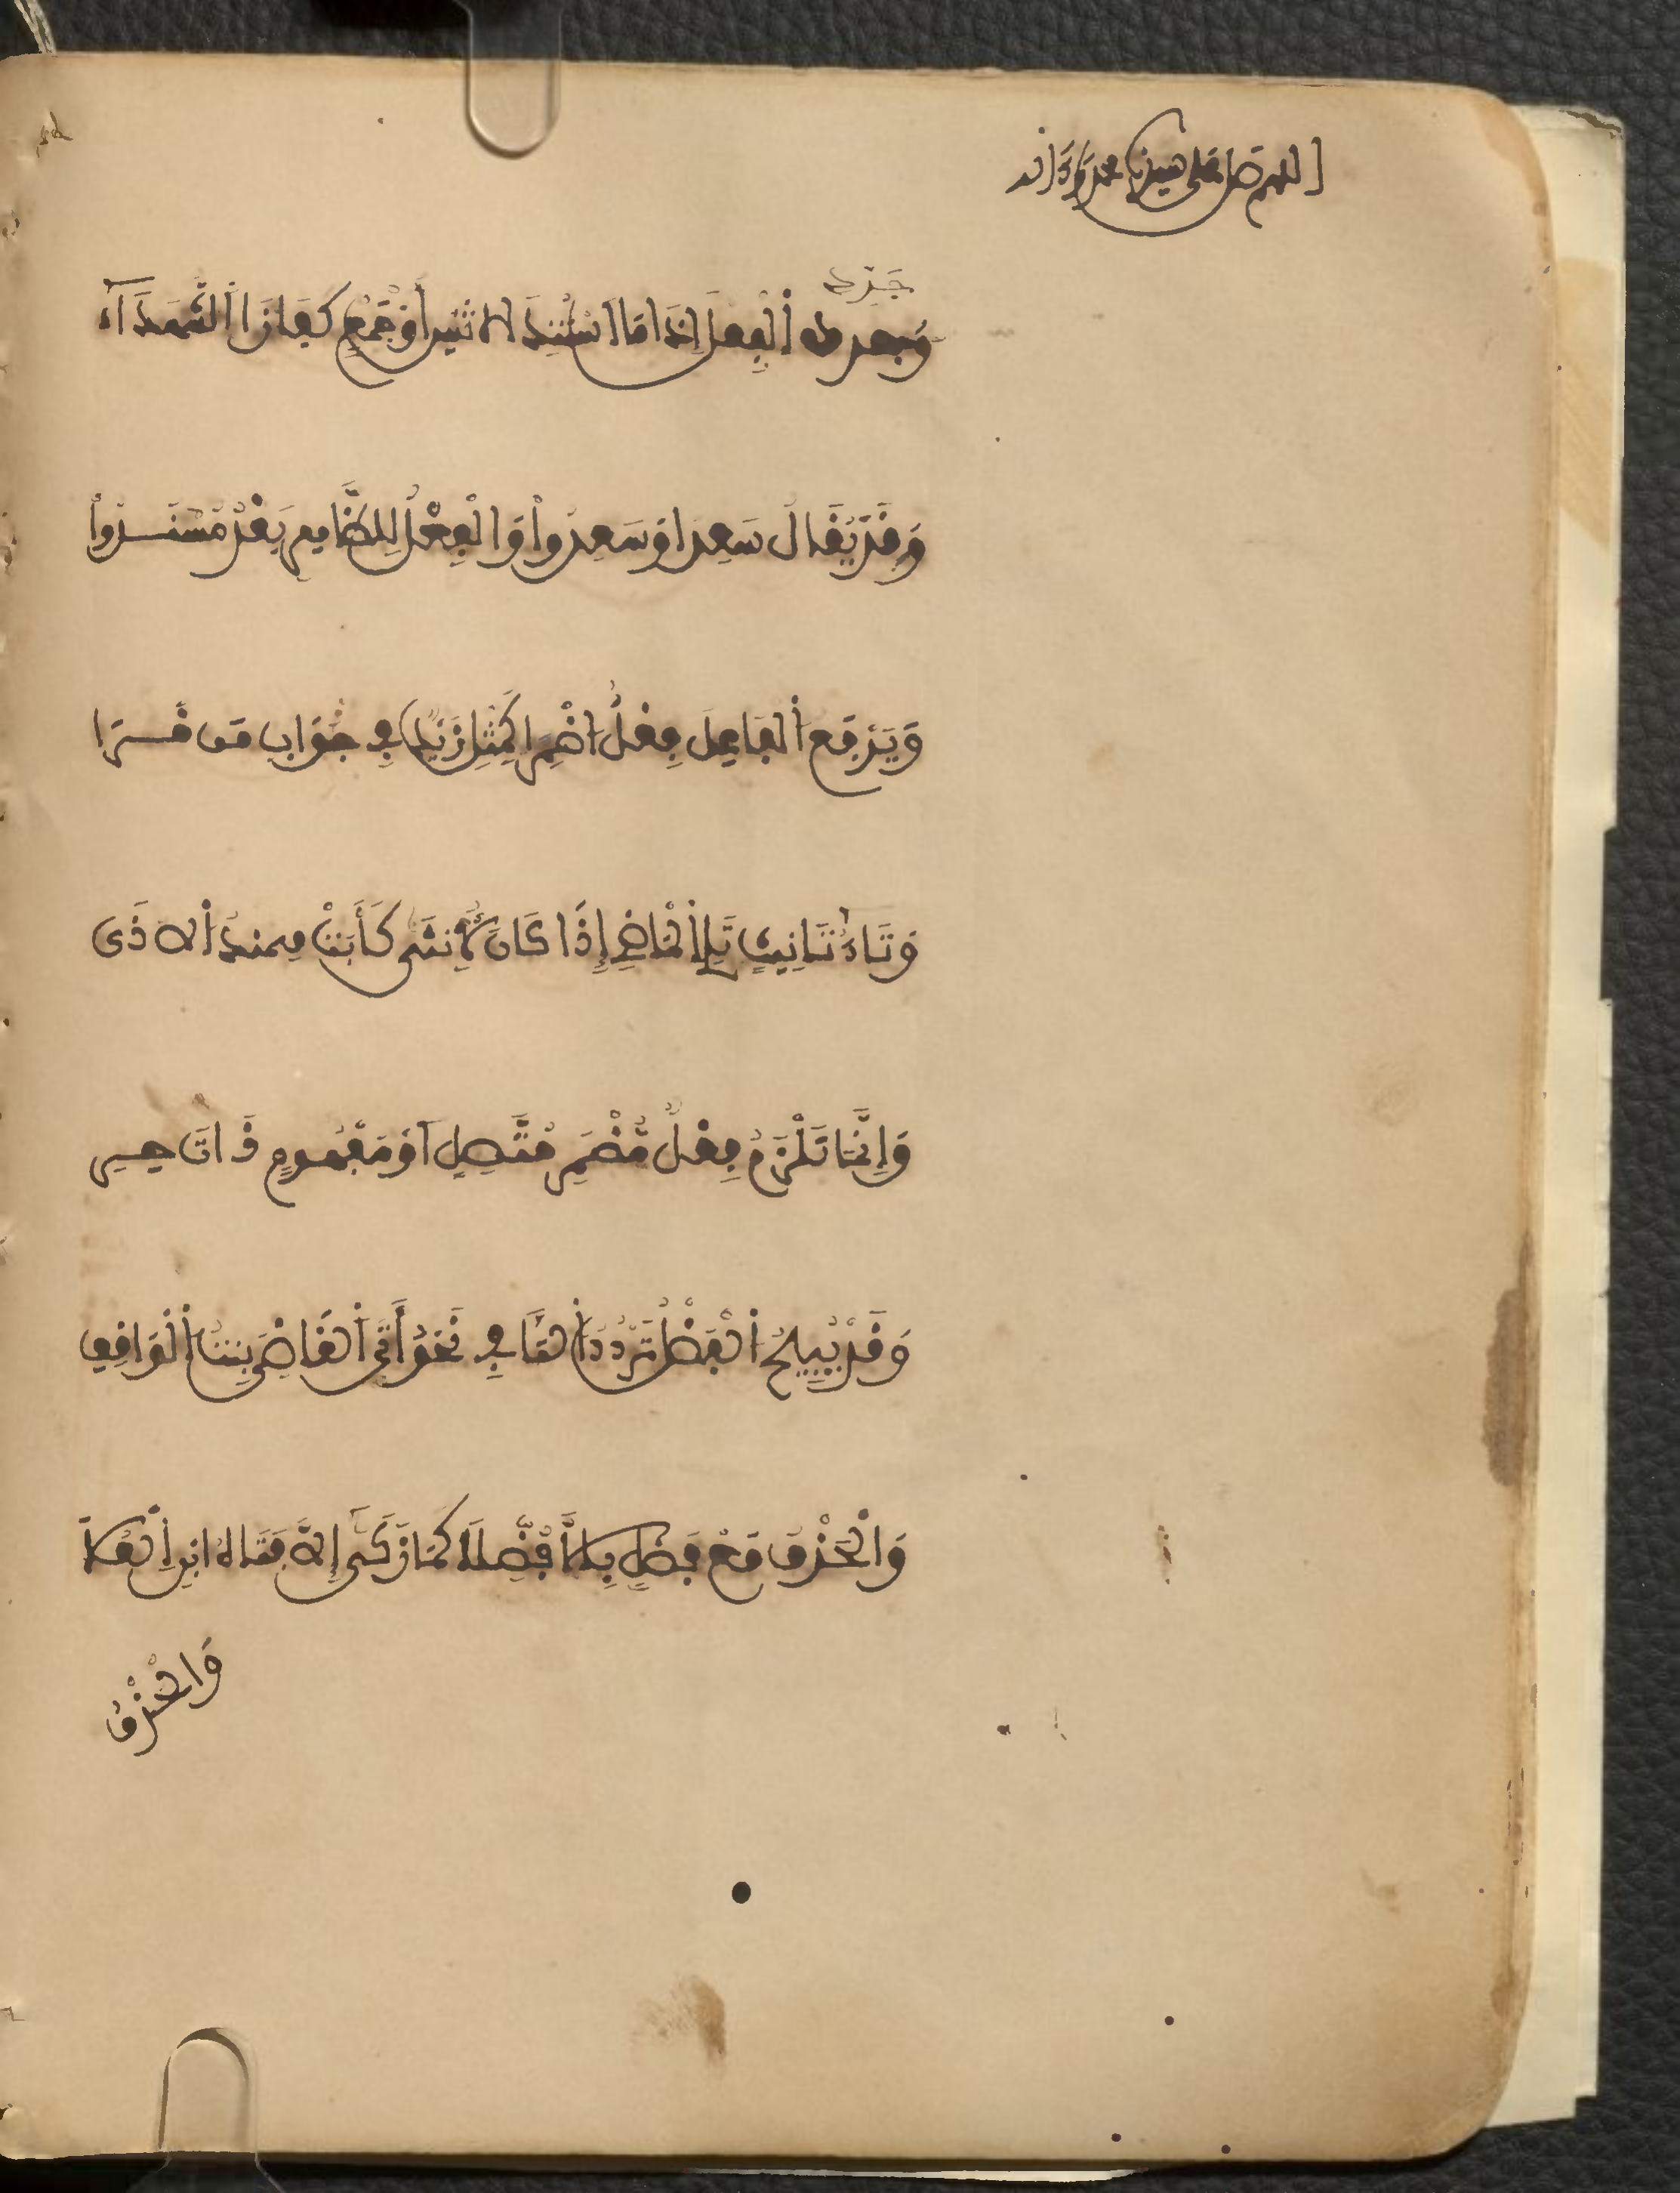 اللهم صل على سيدنا محمد وءاله
جرد
وَجرد اُ۬لْفِعْلَ إِذَا مَا أُسْنِدَا لِاثْنَيْنِ أَوْ جَمْعٍ كَفَازَ اَ۬لشُّهَدَآءُ
وَقَدْ يُقَالُ سَعِدَا وَسَعِدُواْ وَالْفِعْلُ لِلظَّاهِرِ بَعْدُ مُسْنَدُواْ
وَيَرْفَعُ اُ۬لْفَاعِلَ فِعْلٌ اُضْمِرَا كَمِثْلِ زَيْدٌ فِي جَوَابِ مَن قَـرَا
وَتَاءُ تَانِيثٍ تَلِي اُ۬لْمَاضِي إِذَا كَانَ لِأُنثَى كَأَبَتْ هِندُ اُ۬لَاذَى
وَإِنَّمَا تَلْزَمُ فِعْلَ مُضْمَرِ مُتَّصِلٍ اَوْ مُفْهِمٍ ذَاتَ حِـرِ
وَقَدْ يُبِيحُ اُ۬لْفَصْلُ تَرْكَ اَ۬لتَّاءِ فِي نَحْوِ أَتَى اَ۬لْقَاضِيَ بِنتُ اُ۬لْوَاقِفِ
وَالْحَذْفُ مَعْ فَصْلٍ بِإِلَّا فُضِّلَا كَمَا زَكَى إِلَّا فَتَاةُ اُ۬بْنِ اِ۬لْعَلَا
وَالْحَذْفُ